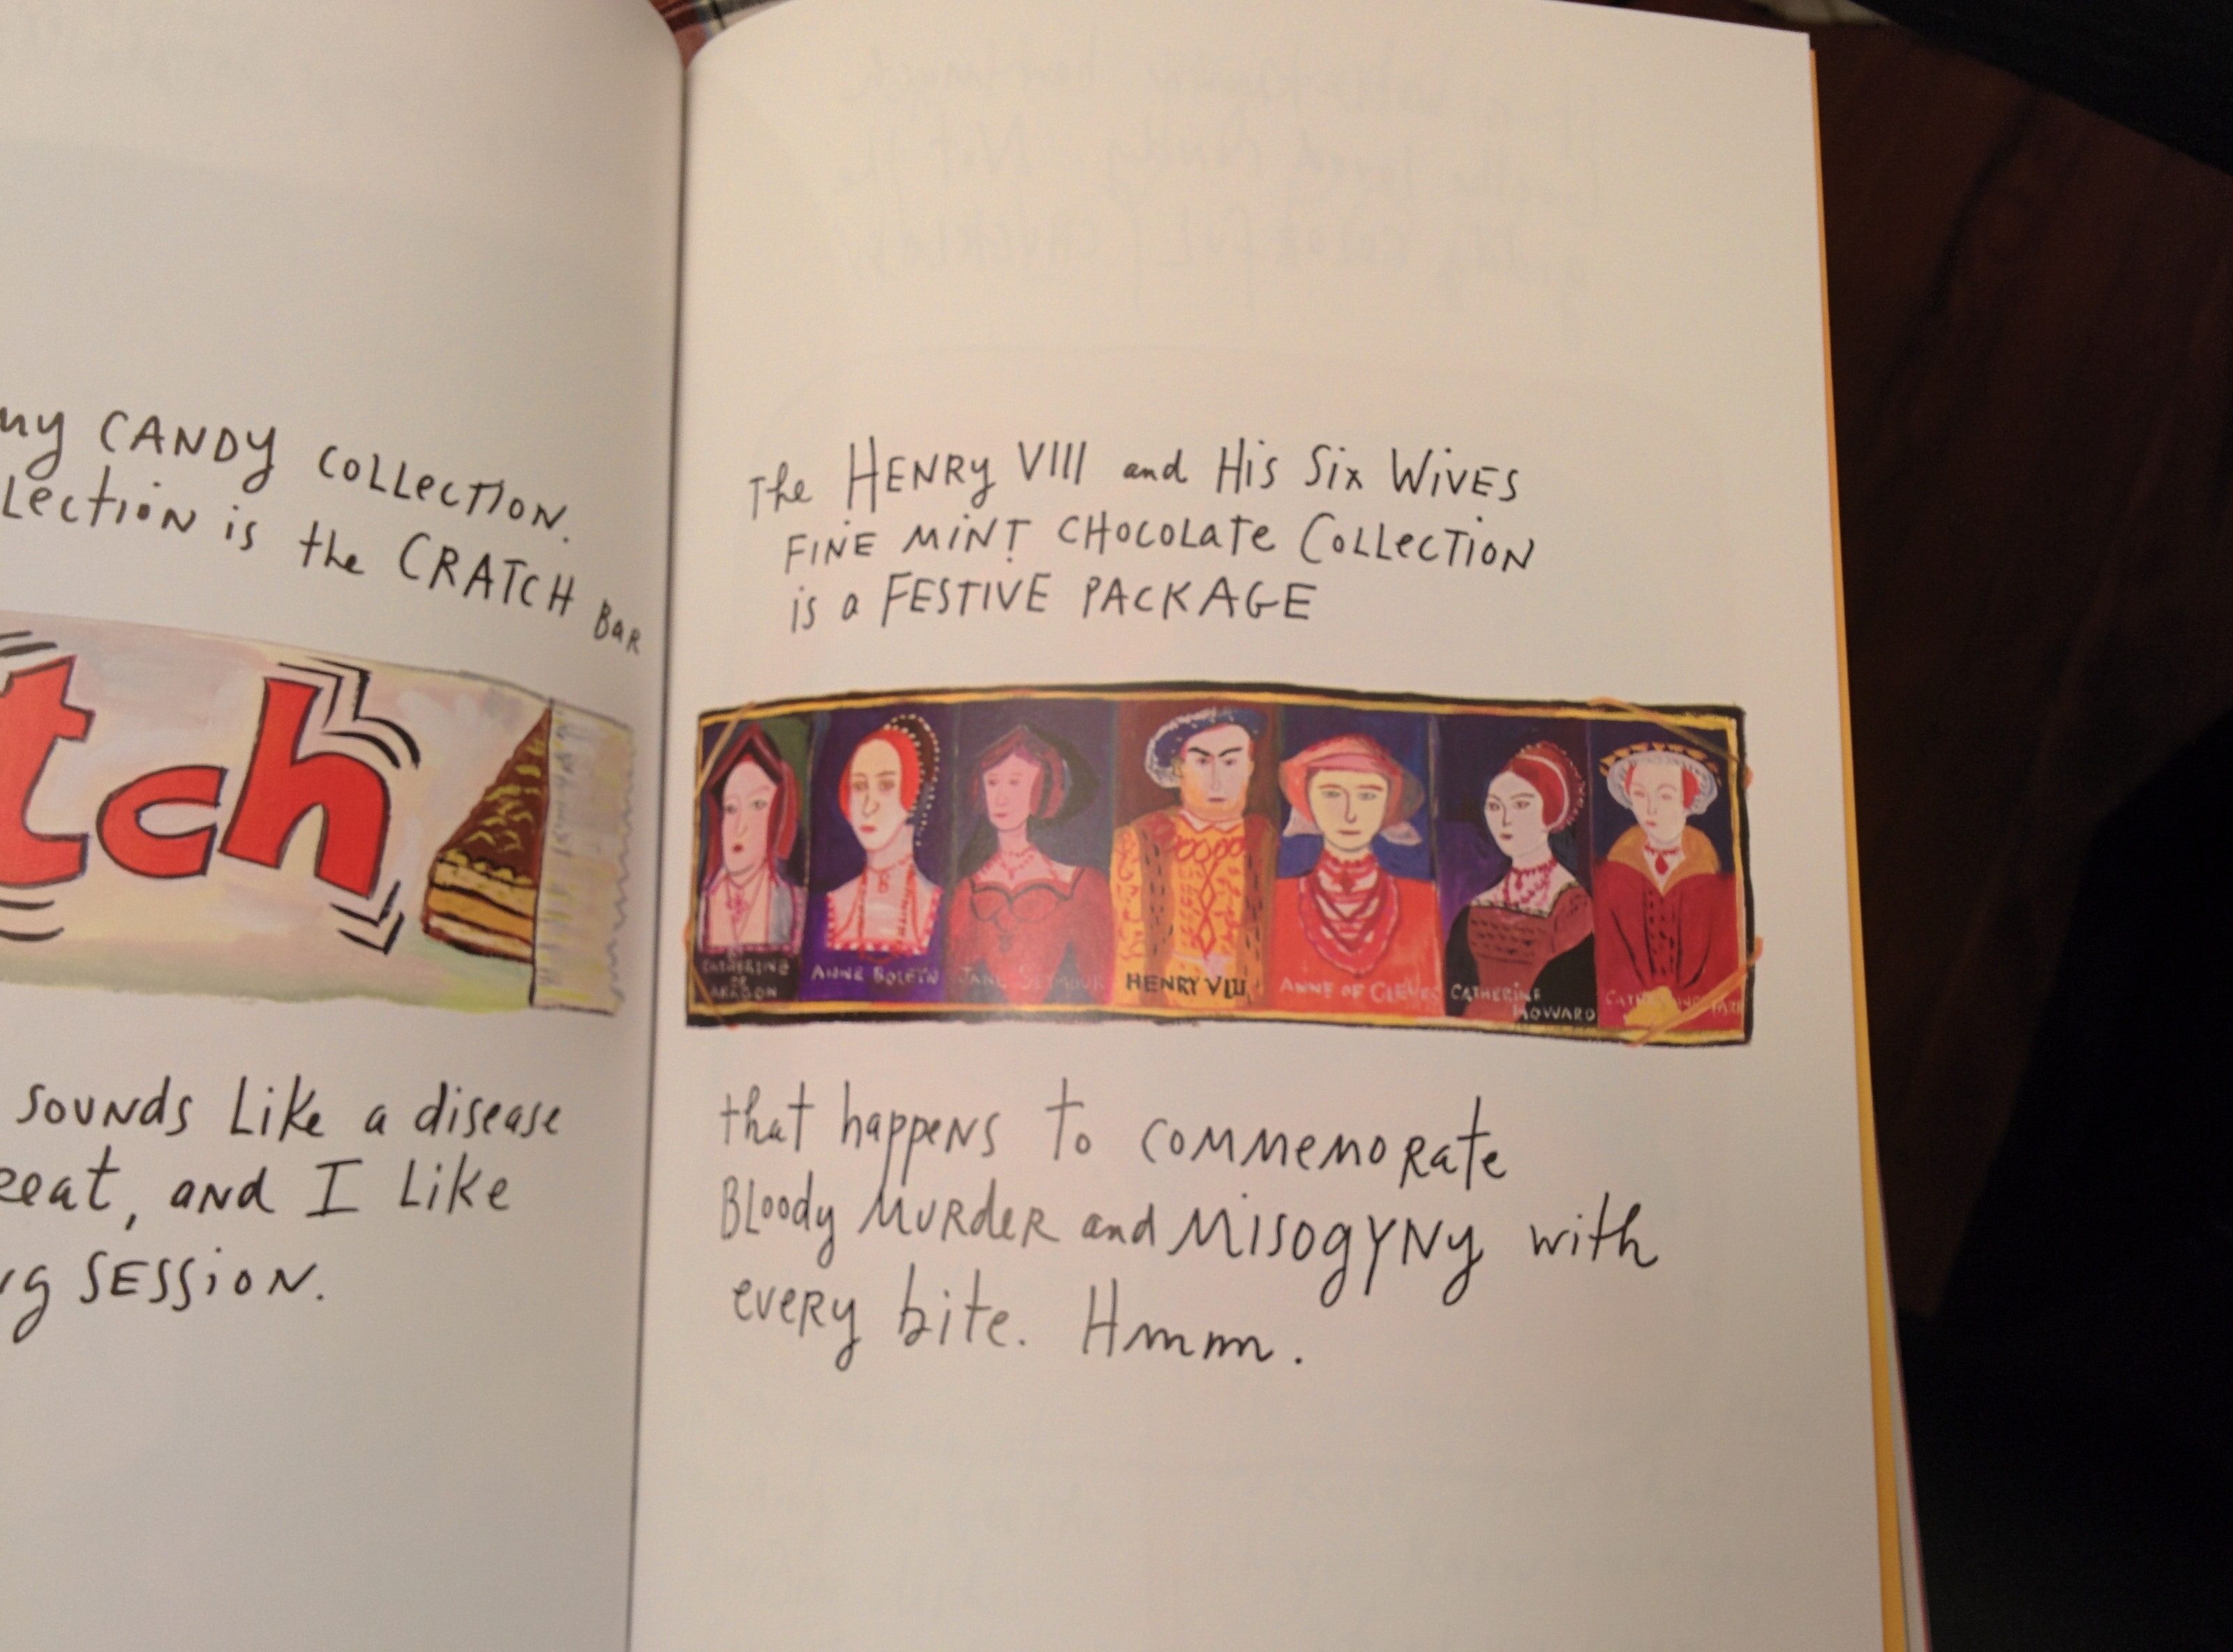 my CANDY COLLECTION.
LECTION is the CRATCH BAR
tch
SOUNDS Like a disease
and I Like
SESSION.
The HENRY VIII and His Six WIVES
FINE MINT CHOCOLATE COLLECTION
is a FESTIVE PACKAGE
CATHERINE
OF
ARAGON
ANNE BOLEYN
JANE SEYMOUR
HENRY VIII
ANNE OF CLEVES
CATHERINE
HOWARD
that happens to commemorate
Bloody MURDER and MISOGYNY with
every bite. Hmmm.